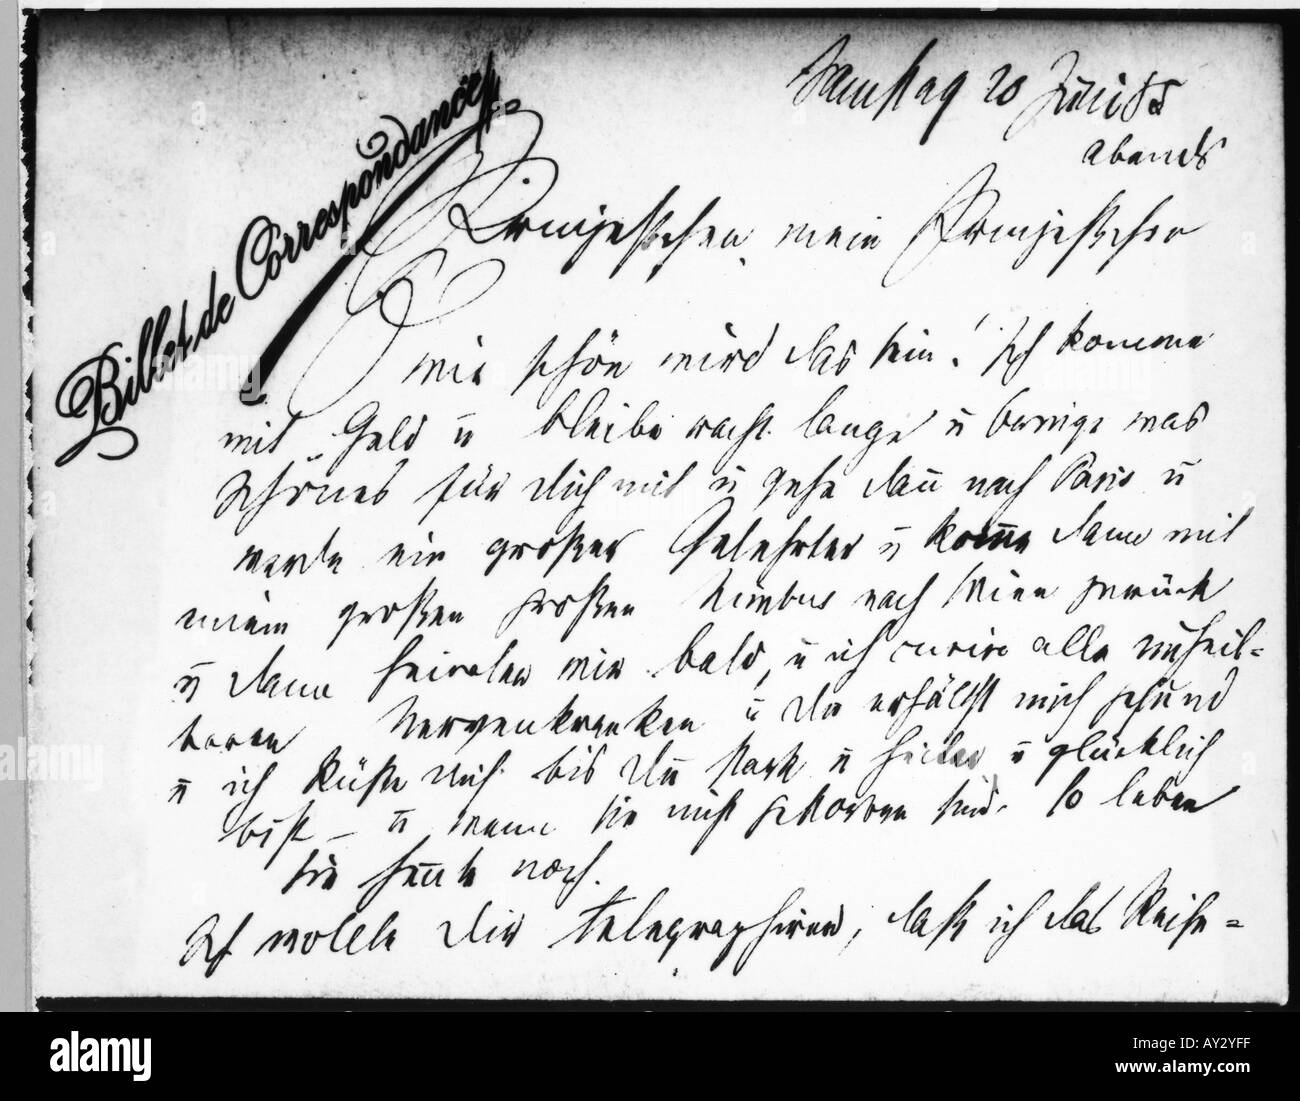 Billet de Correspondance
Samstag 20 Juni 85
abends
Prinzeßchen, mein Prinzeßchen
Wie schön wird das sein! Ich komme
mit Geld u bleibe recht lange u bringe was
Schönes für Dich mit u gehe dann nach Paris u
werde ein großer Gelehrter u komme dann mit
einem großen großen Nimbus nach Wien zurück
u dann heiraten wir bald, u ich curire alle unheil-
baren Nervenkranken u Du erhältst mich gesund
u ich küsse Dich bis Du stark u heiter u glücklich
bist – u wenn sie nicht gestorben sind, so leben
sie heute noch.
Ich wollte Dir telegraphiren, daß ich das Reise-
alamy
Image ID: AY2YFF
www.alamy.com